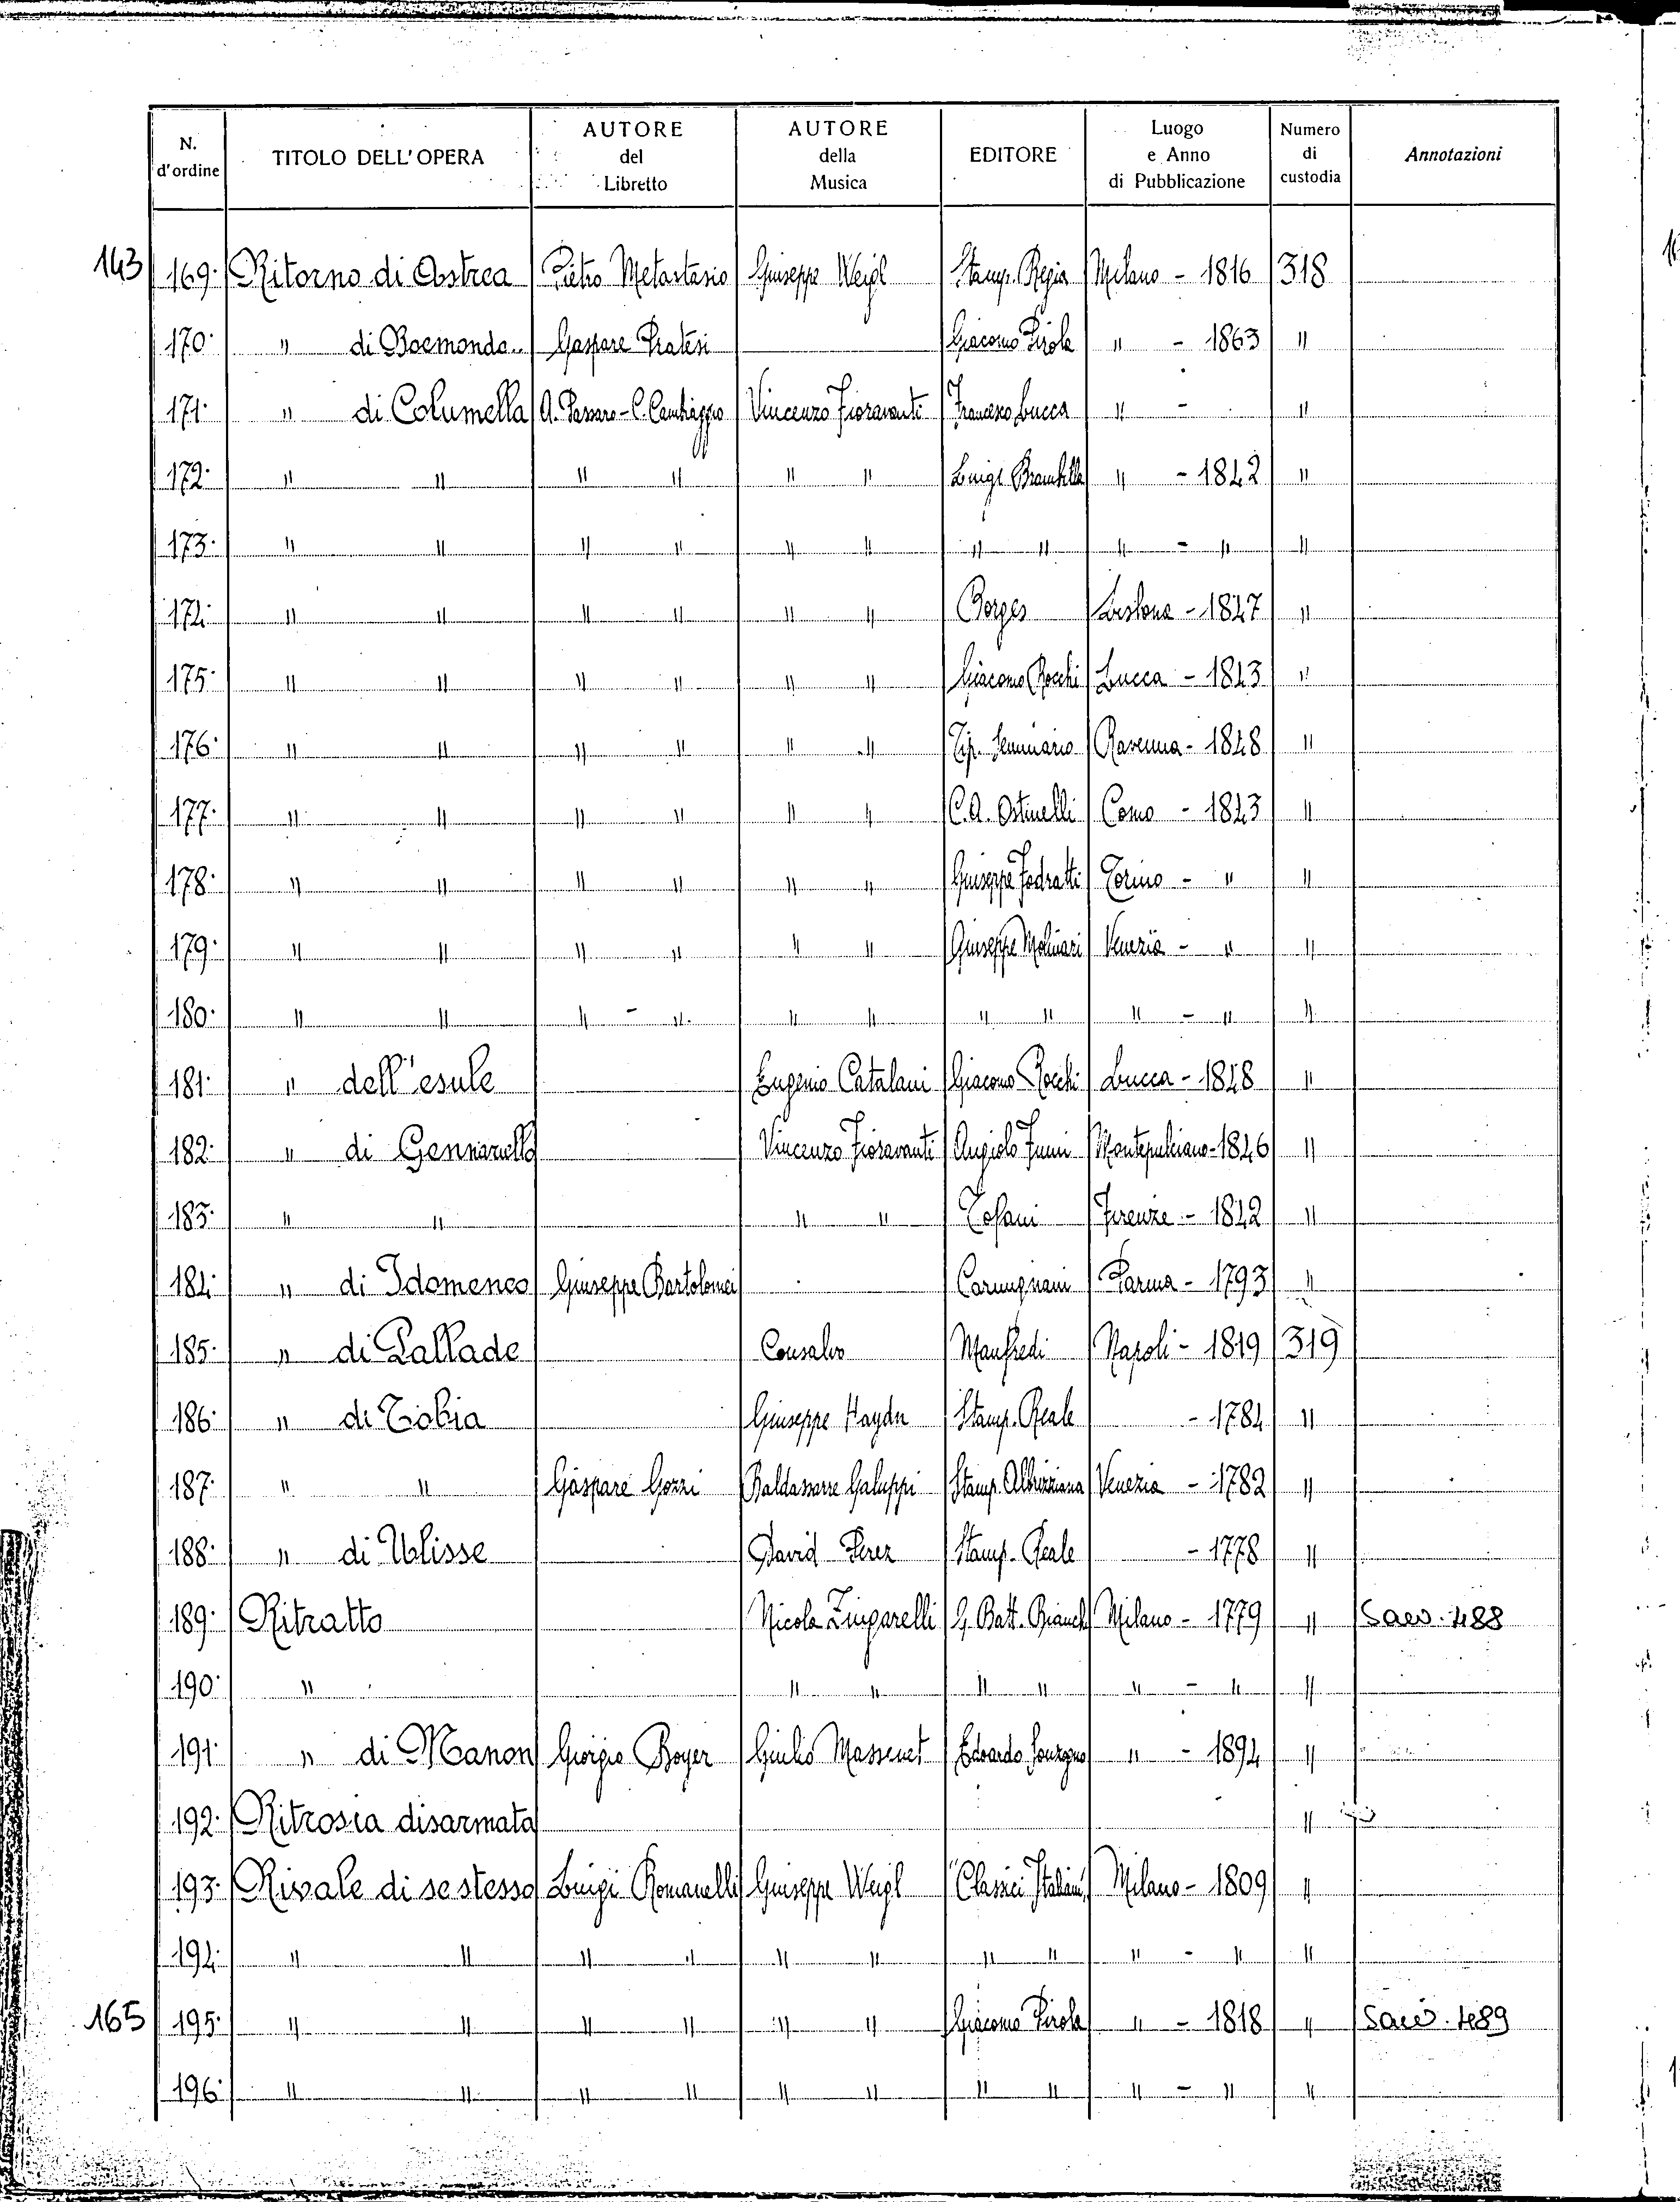 N. d'ordine | TITOLO DELL'OPERA | AUTORE del Libretto | AUTORE della Musica | EDITORE | Luogo e Anno di Pubblicazione | Numero di custodia | Annotazioni
143 169. Ritorno di Astrea | Pietro Metastasio | Giuseppe Weigl | Stamp. Regia | Milano - 1816 | 318
170. " di Boemondo | Gaspare Pratesi | | Giacomo Pirola | " - 1863 | "
171. " di Columella | A. Passaro - C. Cambiaggio | Vincenzo Fioravanti | Francesco Lucca | " - | "
172. " " | " " | " " | Luigi Brambilla | " - 1842 | "
173. " " | " " | " " | " " | " - " | "
174. " " | " " | " " | Borges | Lisbona - 1847 | "
175. " " | " " | " " | Giacomo Rocchi | Lucca - 1843 | "
176. " " | " " | " " | Tip. Seminario | Ravenna - 1848 | "
177. " " | " " | " " | C. A. Ostinelli | Como - 1843 | "
178. " " | " " | " " | Giuseppe Fodratti | Torino - " | "
179. " " | " " | " " | Giuseppe Molinari | Venezia - " | "
180. " " | " - " | " " | " " | " - " | "
181. " dell'esule | | Eugenio Catalani | Giacomo Rocchi | Lucca - 1848 | "
182. " di Gennarello | | Vincenzo Fioravanti | Angiolo Fumi | Montepulciano - 1846 | "
183. " " | | " " | Tofani | Firenze - 1842 | "
184. " di Idomeneo | Giuseppe Bartolomei | | Carmignani | Parma - 1793 | "
185. " di Pallade | | Consalvo | Manfredi | Napoli - 1819 | 319
186. " di Tobia | | Giuseppe Haydn | Stamp. Reale | - 1784 | "
187. " " | Gaspare Gozzi | Baldassarre Galuppi | Stamp. Albrizziana | Venezia - 1782 | "
188. " di Ulisse | | David Perez | Stamp. Reale | - 1778 | "
189. Ritratto | | Nicola Zingarelli | G. Batt. Bianchi | Milano - 1779 | " | 488
190. " | | " " | " " | " - " | "
191. " di Manon | Giorgio Boyer | Giulio Massenet | Edoardo Sonzogno | " - 1894 | "
192. Ritrosia disarmata | | | | | "
193. Rivale di se stesso | Luigi Romanelli | Giuseppe Weigl | "Classici Italiani" | Milano - 1809 | "
194. " " | " " | " " | " " | " - " | "
165 195. " " | " " | " " | Giacomo Pirola | " - 1818 | " | 489
196. " " | " " | " " | " " | " - " | "